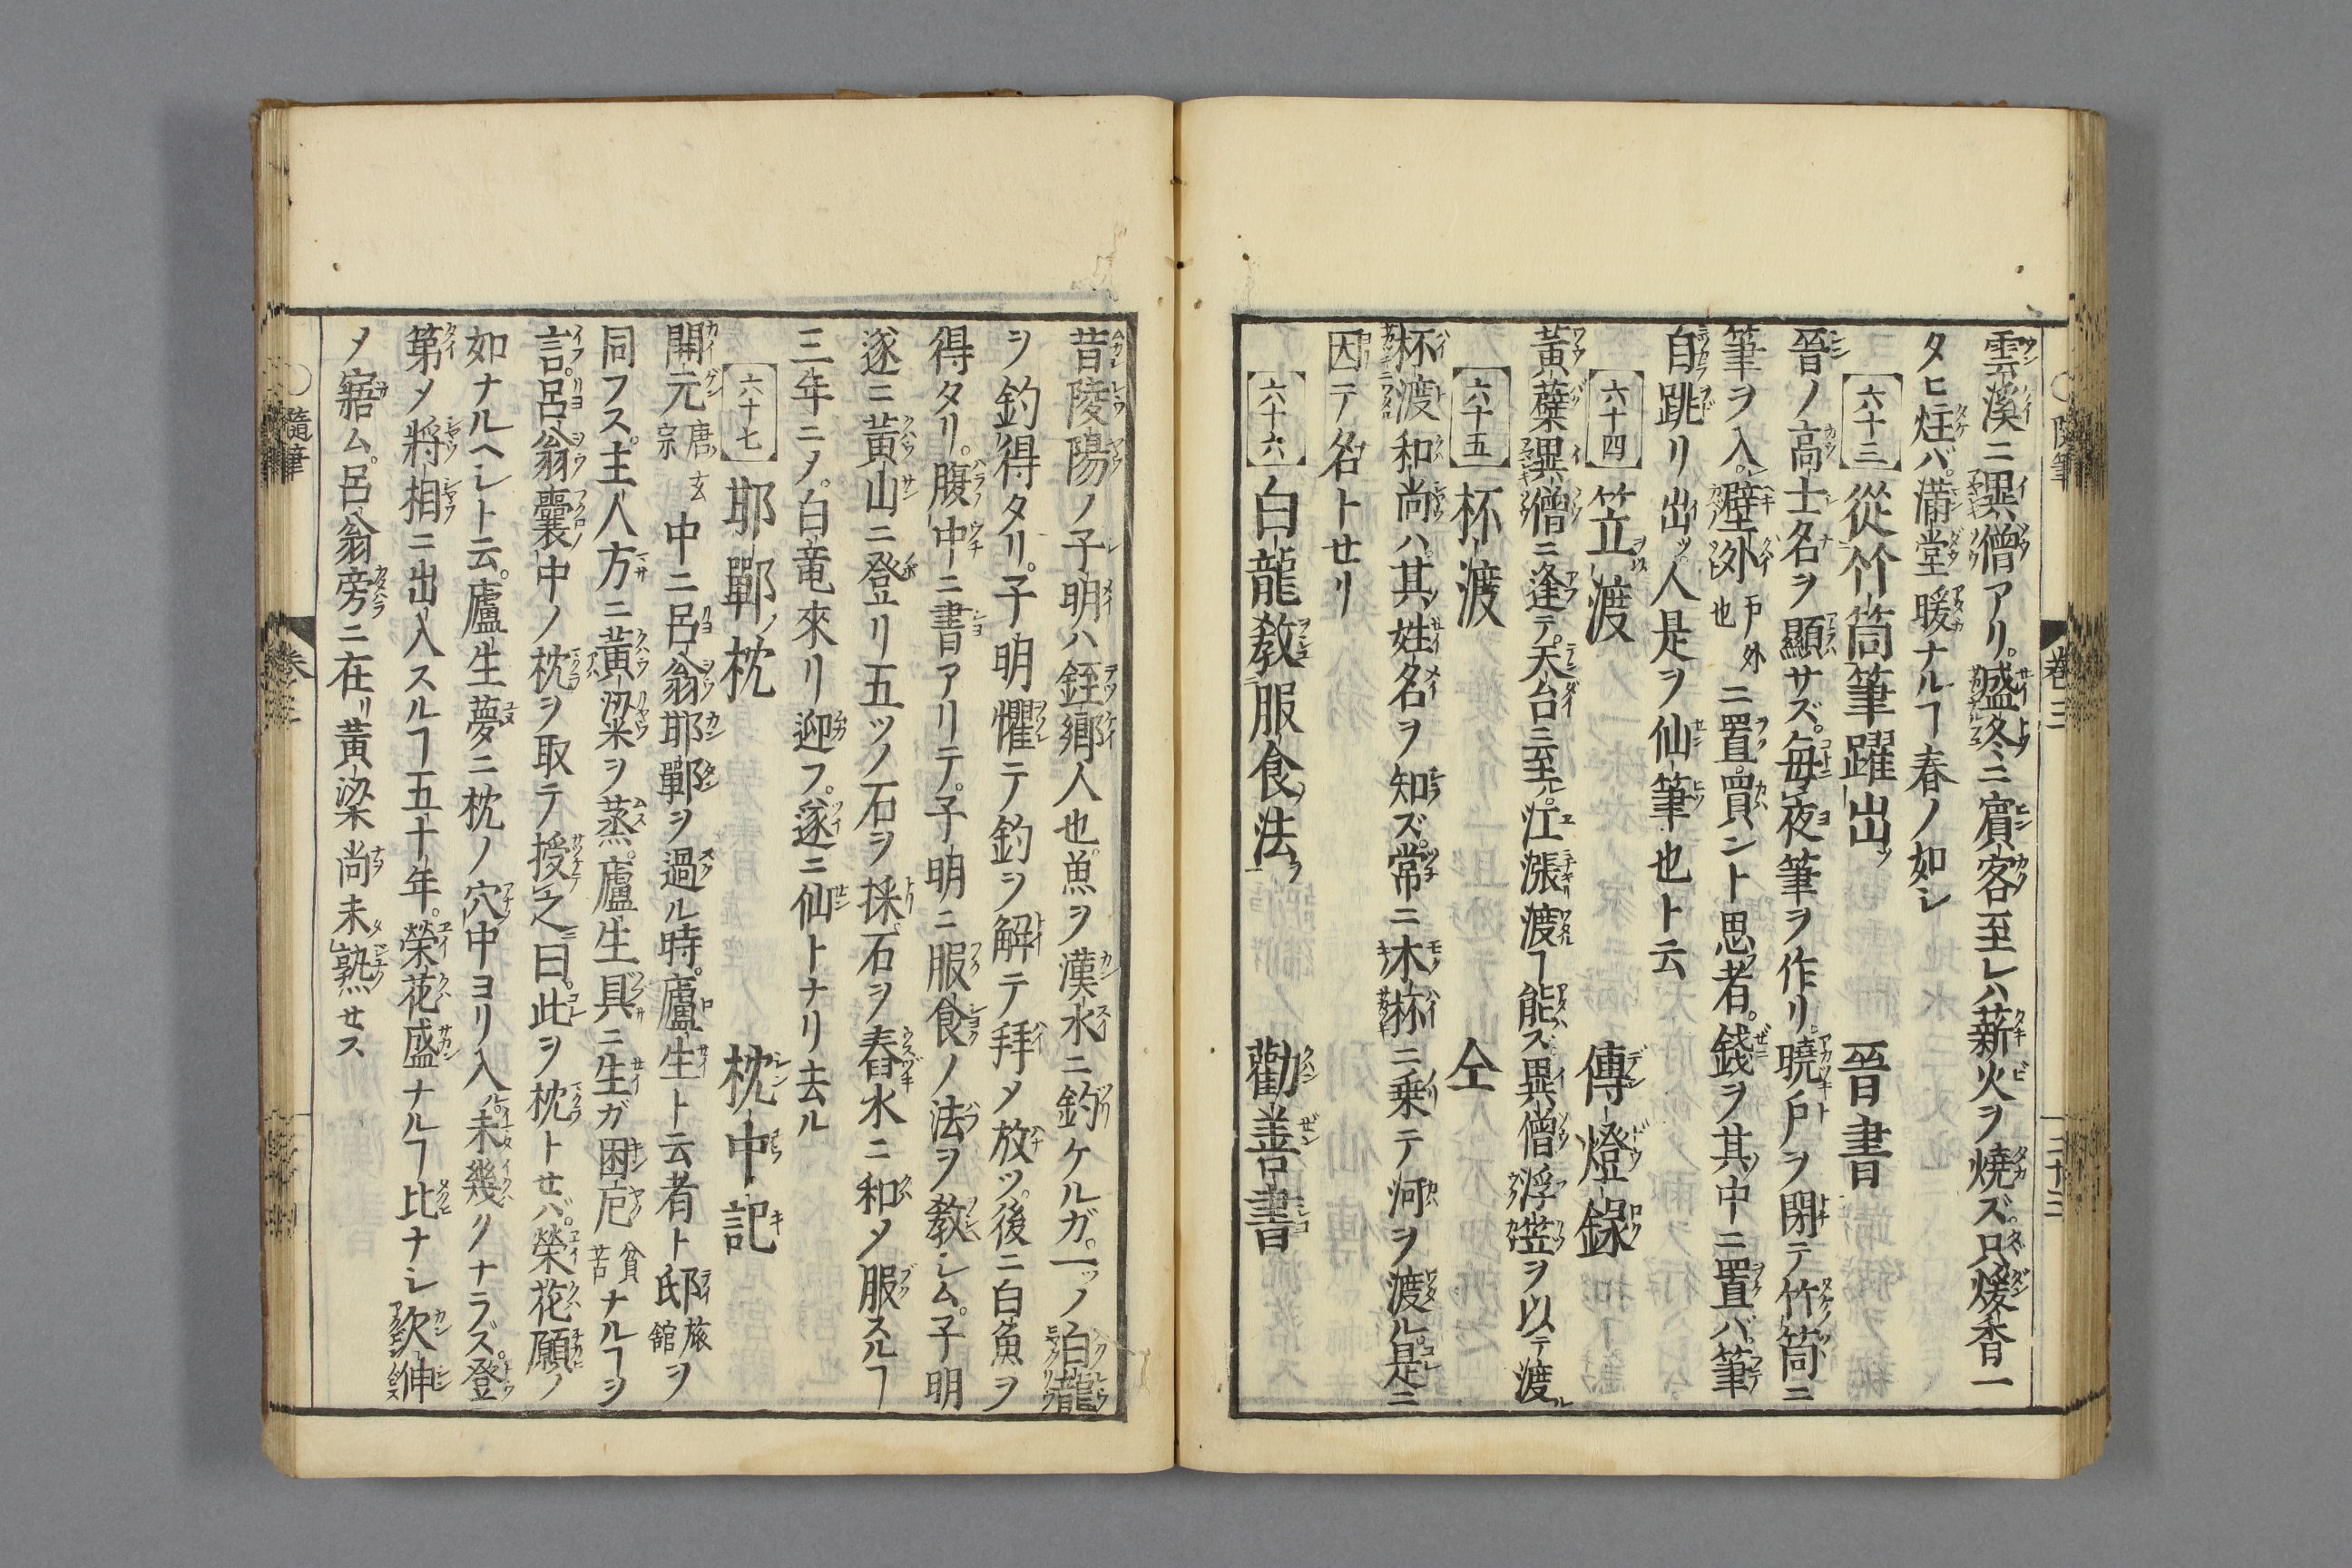 雲溪ニ異僧アリ。盛冬ニ賓客至レハ薪火ヲ燒ズ。只煖香一
タヒ炷バ。滿堂暖ナルヿ春ノ如シ
六十三 從竹筒筆躍出ッ 晉書
晉ノ高士名ヲ顯サズ。毎夜筆ヲ作リ。曉戶ヲ閉テ竹筒ニ
筆ヲ入。壁外戶外也ニ置。買ント思者。錢ヲ其中ニ置バ筆
自跳リ出ッ人是ヲ仙筆也ト云
六十四 笠渡 傳燈錄
黃蘗異僧ニ逢テ。天台ニ至ル。江漲渡ヿ能ス異僧浮笠ヲ以テ渡ル
六十五 杯渡 仝
杯渡和尚ハ其姓名ヲ知ズ。常ニ木杯ニ乗テ河ヲ渡ル。是ニ
因テ名トセリ
六十六 白龍敎服食法ヲ 勸善書
昔陵陽ノ子明ハ銍鄕人也。魚ヲ漢水ニ釣ケルガ。一ッノ白龍
ヲ釣得タリ。子明懼テ釣ヲ解テ拜メ放ツ。後ニ白魚ヲ
得タリ。腹中ニ書アリテ。子明ニ服食ノ法ヲ敎シム。子明
遂ニ黃山ニ登リ五ツノ石ヲ採。石ヲ舂水ニ和メ服スルヿ
三年ニメ。白竜來リ迎フ。遂ニ仙トナリ去ル
六十七 耶鄲ノ枕 枕中記
開元唐玄宗中ニ呂翁耶鄲ヲ過ル時。盧生ト云者ト邸旅舘ヲ
同フス。主人方ニ黃粱米ヲ蒸。盧生具ニ生ガ困戹貧苦ナルヿヲ
言。呂翁囊中ノ枕ヲ取テ授之曰。此ヲ枕トセバ。榮花願ノ
如ナルヘシト云。盧生夢ニ枕ノ穴中ヨリ入ル。未幾クナラズ。登
第メ將相ニ出入スルヿ五十年。榮花盛ナルヿ比ナシ欠伸
メ寤ム。呂翁旁ニ在リ黃粱尚未熟セス
隨筆 卷三